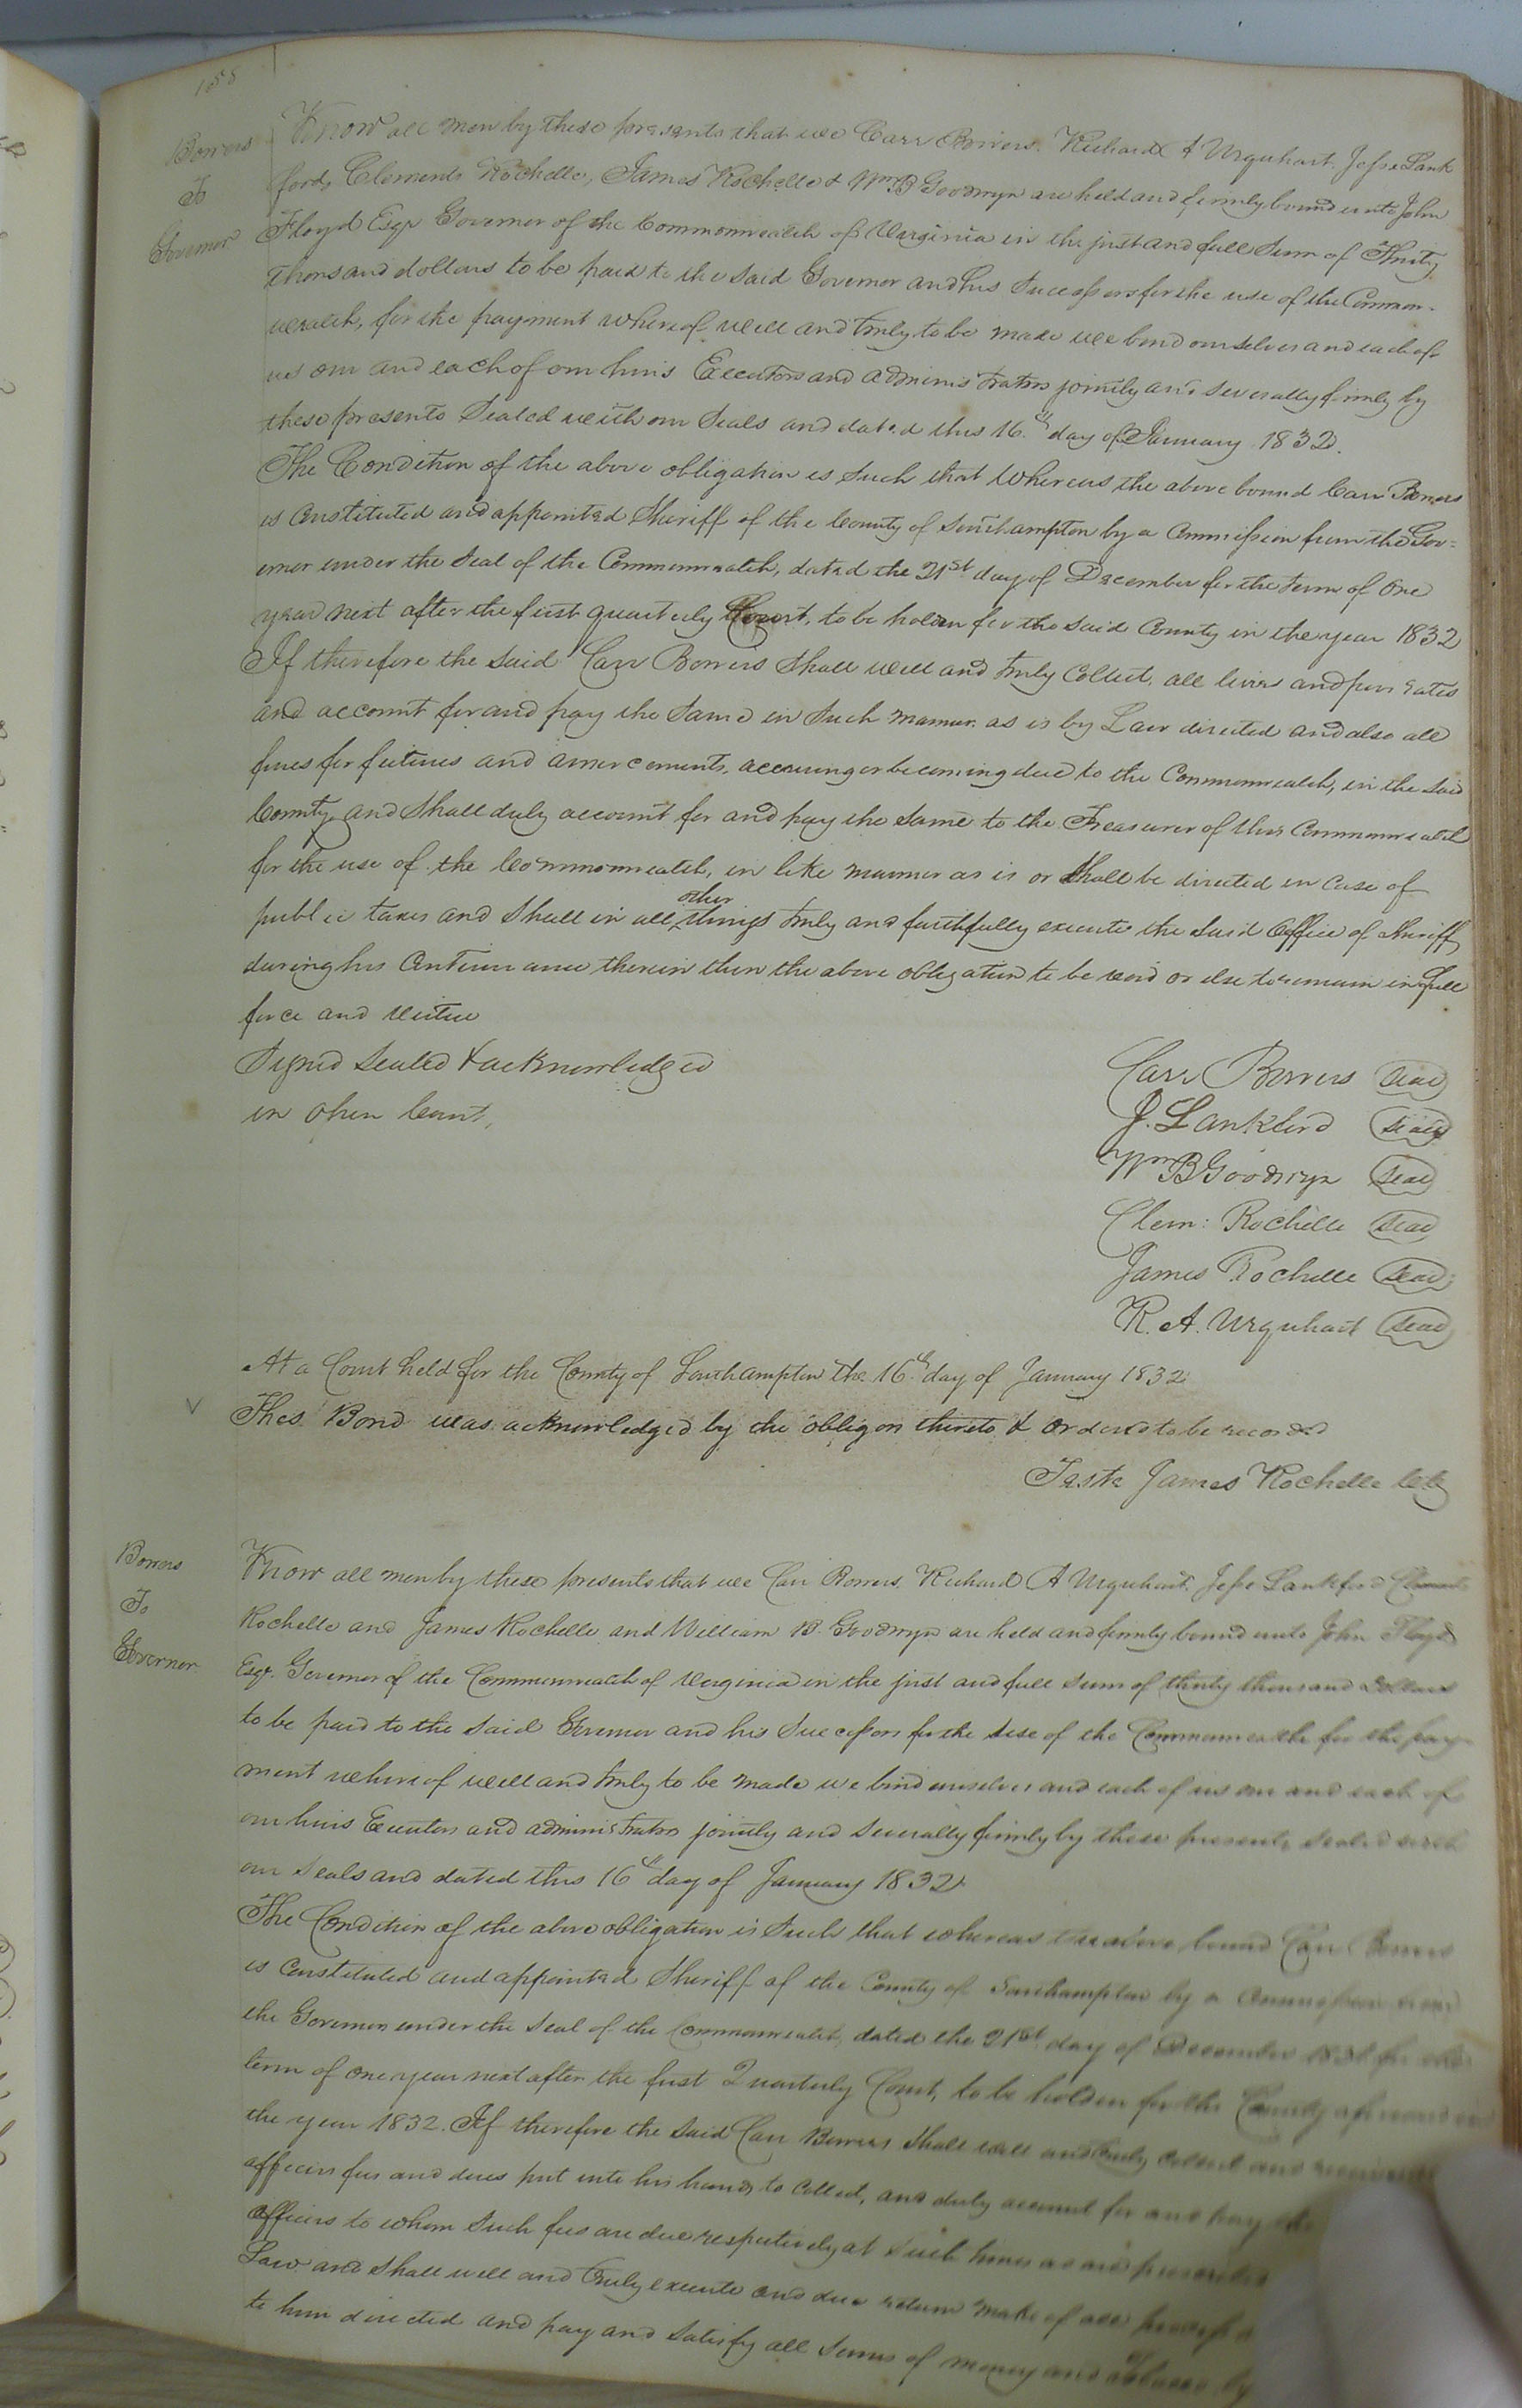 158
Bowers
To
Governor
Know all men by these presents that we Carr Bowers, Richard A Urquhart, Jesse Lank
ford, Clements Rochelle, James Rochelle & Wm B Goodwyn are held and firmly bound unto John
Floyd Esqr Governor of the Commonwealth of Virginia in the just and full Sum of Thirty
thousand dollars to be paid to the said Governor and his Successors for the use of the Common-
wealth, for the payment whereof well and truly to be made we bind ourselves and each of
us our and each of our heirs Executors and administrators jointly and severally firmly by
these presents Sealed with our Seals and dated this 16th day of January 1832.
The Condition of the above obligation is Such that Whereas the above bound Carr Bowers
is Constituted and appointed Sheriff of the County of Southampton by a Commission from the Gov=
ernor under the Seal of the Commonwealth, dated the 21st day of December for the term of One
year next after the first quarterly Court, to be holden for the said County in the year 1832
If therefore the Said Carr Bowers Shall well and truly Collect, all levies and poor rates
and account for and pay the Same in Such manner as is by Law directed and also all
fines forfeitures and amercements, accruing or becoming due to the Commonwealth, in the said
County, and Shall duly account for and pay the Same to the Treasurer of this Commonwealth
for the use of the Commonwealth, in like manner as is or Shall be directed in Case of
public taxes and Shall in all other things truly and faithfully execute the Said Office of Sheriff
during his Continuance therein then the above obligation to be void or else to remain in full
force and virtue
Signed Sealed & acknowledged
in open Court,
Carr Bowers Seal
J. Lankford Seal
Wm B Goodwyn Seal
Clem: Rochelle Seal
James Rochelle Seal
R. A. Urquhart Seal
At a Court held for the County of Southampton the 16th day of January 1832
This Bond was acknowledged by the obligors thereto & Ordered to be recorded
Teste James Rochelle Clk
Bowers
To
Governor
Know all men by these presents that we Carr Bowers, Richard A Urquhart, Jesse Lankford Clements
Rochelle and James Rochelle and William B. Goodwyn are held and firmly bound unto John Floyd
Esqr. Governor of the Commonwealth of Virginia in the just and full Sum of thirty thousand Dollars
to be paid to the Said Governor and his Successors for the use of the Commonwealth for the pay
ment whereof well and truly to be made we bind ourselves and each of us our and each of
our heirs Executors and administrators jointly and severally firmly by these presents Sealed with
our Seals and dated this 16th day of January 1832
The Condition of the above obligation is Such that whereas the above bound Carr Bowers
is Constituted and appointed Sheriff of the County of Southampton by a Commission from
the Governor under the Seal of the Commonwealth, dated the 21st day of December 1831 for the
term of one year next after the first Quarterly Court, to be holden for the County aforesaid in
the year 1832. If therefore the Said Carr Bowers Shall well and truly Collect and receive
officers fees and dues put into his hands to Collect, and duly account for and pay the
Officers to whom Such fees are due respectively at Such times as are prescribed
Law and Shall well and truly execute and due return make of all process
to him directed and pay and Satisfy all Sums of money and Tobacco by